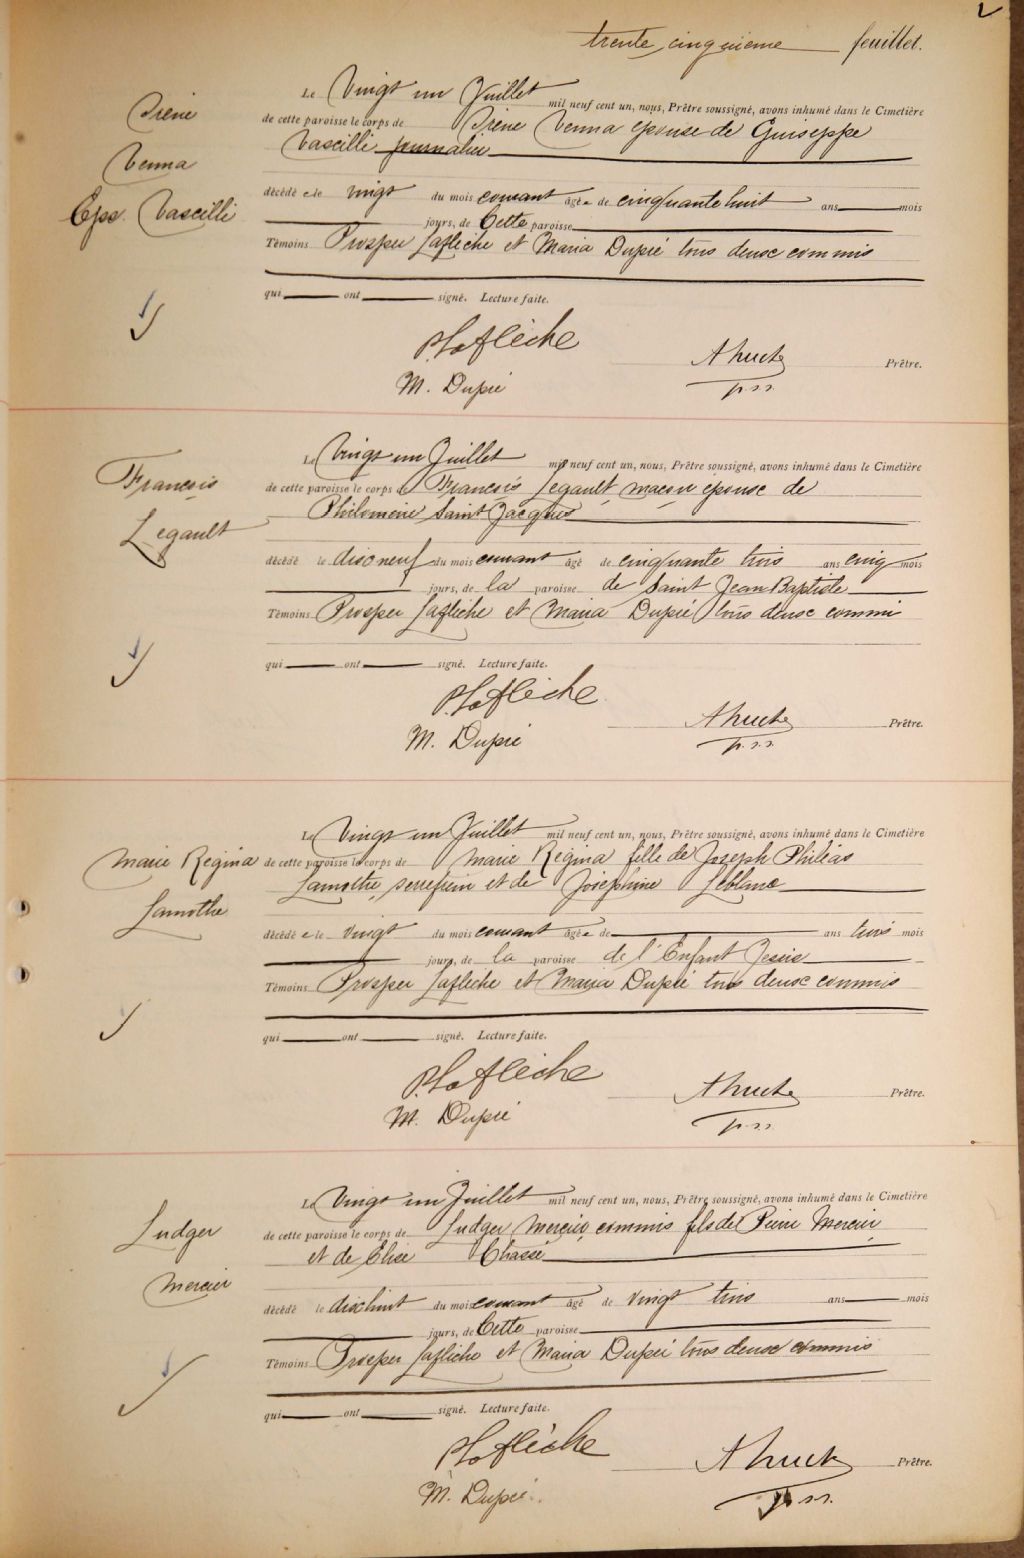 trente cinquieme feuillet.
Irène
Venna
Eps. Vascilli
Le Vingt un Juillet mil neuf cent un, nous, Prêtre soussigné, avons inhumé dans le Cimetière
de cette paroisse le corps de Irène Venna épouse de Guiseppe
Vascilli journalier
décédée le vingt du mois courant âgée de cinquante huit ans mois
jours, de Cette paroisse
Témoins Prosper Laflèche et Maria Dupré tous deux commis
qui ont signé. Lecture faite.
P. Laflèche
M. Dupré
Prêtre.
p.s.s.
François
Legault
Le Vingt un Juillet mil neuf cent un, nous, Prêtre soussigné, avons inhumé dans le Cimetière
de cette paroisse le corps de François Legault, maçon époux de
Philomène Saint Jacques
décédé le dix neuf du mois courant âgé de cinquante trois ans cinq mois
jours, de la paroisse de Saint Jean Baptiste
Témoins Prosper Laflèche et Maria Dupré tous deux commi
qui ont signé. Lecture faite.
P. Laflèche
M. Dupré
Prêtre.
p.s.s.
Marie Régina
Lamothe
Le Vingt un Juillet mil neuf cent un, nous, Prêtre soussigné, avons inhumé dans le Cimetière
de cette paroisse le corps de Marie Régina fille de Joseph Philéas
Lamothe, serrefrein et de Joséphine Leblanc
décédée le vingt du mois courant âgée de ans trois mois
jours, de la paroisse de l'Enfant Jésus
Témoins Prosper Laflèche et Maria Dupré tous deux commis
qui ont signé. Lecture faite.
P. Laflèche
M. Dupré
Prêtre.
p.s.s.
Ludger
Mercier
Le Vingt un Juillet mil neuf cent un, nous, Prêtre soussigné, avons inhumé dans le Cimetière
de cette paroisse le corps de Ludger Mercier, commis fils de Pierre Mercier
et de Elise Chassé
décédé le dix huit du mois courant âgé de vingt trois ans mois
jours, de Cette paroisse
Témoins Prosper Laflèche et Maria Dupré tous deux commis
qui ont signé. Lecture faite.
P. Laflèche
M. Dupré
Prêtre.
p.s.s.